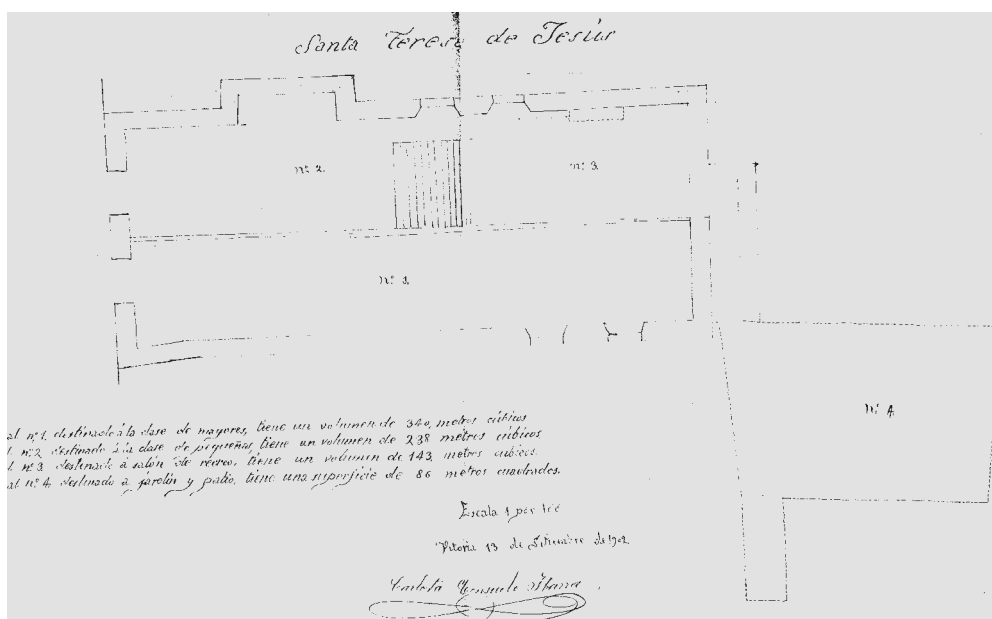 Santa Teresa de Jesús
nº 2.
nº 3
nº 1.
nº 4.
al nº 1. destinado á la clase de mayores, tiene un volumen de 340, metros cúbicos
l. nº 2 destinado á la clase de pequeñas, tiene un volumen de 238 metros cúbicos
l nº 3 destinado a salón de recreo, tiene un volumen de 143, metros cubicos.
al nº 4. destinado a jardín y patio, tiene una superficie de 86 metros cuadrados.
Escala 1 por 100
Vitoria 13 de Setiembre de 1902
Carlota Consuelo Ibarra